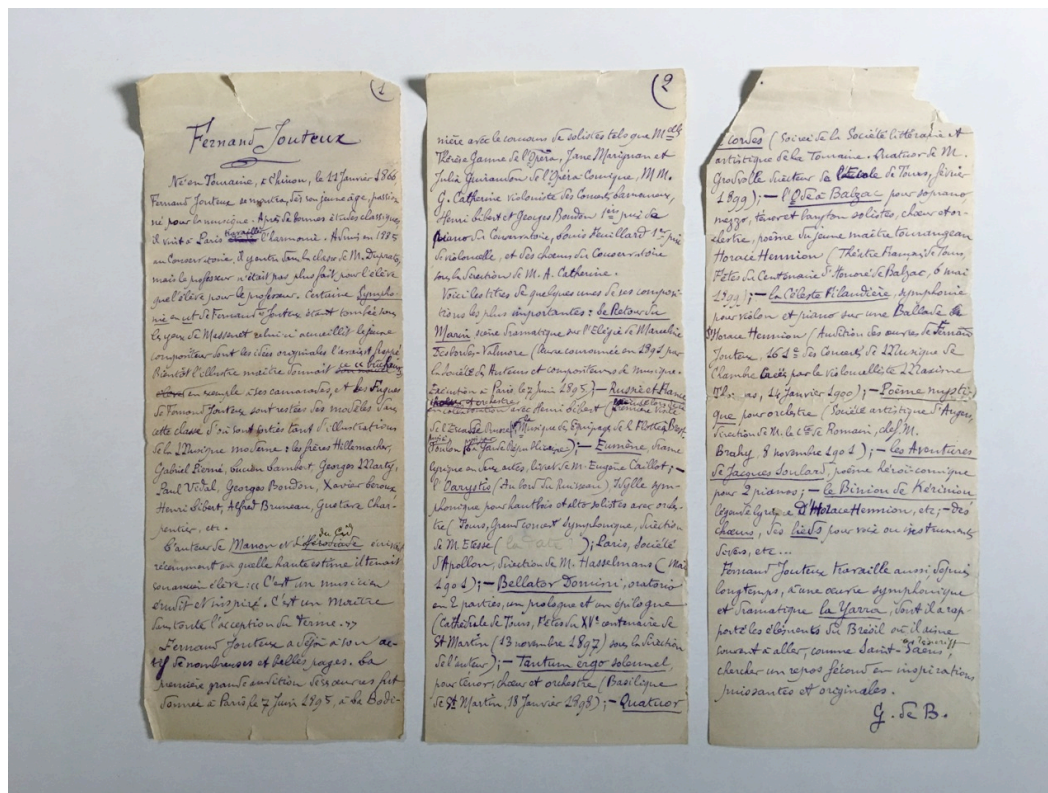 1
Fernand Jouteux
Né en Touraine, à Chinon, le 11 Janvier 1866
Fernand Jouteux se montra, dès son jeune âge, passion
né pour la musique. Après de bonnes études classiques,
il vint à Paris travailler l'harmonie. Admis en 1885
au Conservatoire, il y entre dans la classe de M. Duprato,
mais le professeur n'était pas plus fait pour l'élève
que l'élève pour le professeur. Certaine Sympho-
nie en ut de Fernand Jouteux étant tombée sous
les yeux de Massenet celui-ci accueillit le jeune
compositeur dont les idées originales l'avaient frappé.
Bientôt l'illustre maître donnait
en exemple à ses camarades, et les Fugues
de Fernand Jouteux sont restées des modèles dans
cette classe d'où sont sortis tant d'illustrations
de la Musique moderne : les frères Hillemacher,
Gabriel Pierné, Lucien Lambert, Georges Marty,
Paul Vidal, Georges Bondon, Xavier Leroux,
Henri Libert, Alfred Bruneau, Gustave Char-
pentier, etc.
L'auteur de Manon et d'Hérodiade du Cid
récemment en quelle haute estime il tenait
son ancien élève : « C'est un musicien
érudit et inspiré. C'est un Maître
dans toute l'acception du terme. »
Fernand Jouteux a déjà à son ac-
tif de nombreuses et belles pages. La
première grande audition de ses œuvres fut
donnée à Paris le 7 Juin 1895, à la Bodi-
2
nière avec le concours de solistes tels que Mdlles
Thérèse Ganne de l'Opéra, Jane Marignan et
Julia Guiraudon de l'Opéra Comique, M M.
G. Catherine violoniste des Concerts Lamoureux,
Henri Libert et Georges Bondon 1ers prix de
piano du Conservatoire, Louis Feuillard 1er prix
de violoncelle, et des chœurs du Conservatoire
sous la direction de M. A. Catherine.
Voici les titres de quelques unes de ses composi-
tions les plus importantes : Le Retour du
Marin scène dramatique sur l'Elégie de Marceline
Desbordes-Valmore (Œuvre couronnée en 1891 par
la Société des Auteurs et compositeurs de musique.
Exécution à Paris le 7 Juin 1895) — Russie et France
en collaboration avec Henri Libert
de l'Escadre Russe, Musique des Equipages de la Flotte
Toulon ; — Eumène, drame
lyrique en deux actes, livret de M. Eugène Caillot ; —
l'Oarystis (Au bord du Ruisseau) Idylle sym-
phonique pour hautbois et alto solistes avec orches-
tre (Tours, Grand concert symphonique, direction
de M. Etesse (la date ) ; Paris, Société
d'Apollon, direction de M. Hasselmans (Mai
1901) ; — Bellator Domini, oratorio
en 2 parties, un prologue et un épilogue
(Cathédrale de Tours, Fêtes du XVe centenaire de
St Martin (13 novembre 1897) sous la direction
de l'auteur) ; — Tantum ergo solennel,
pour tenor, chœur et orchestre (Basilique
de St Martin, 18 Janvier 1898) ; — Quatuor
à cordes (Soirée de la Société littéraire et
artistique de la Touraine. Quatuor de M.
Grodvolle directeur de l'école de Tours, février
1899) ; — l'Ode à Balzac pour soprano,
mezzo, ténor et baryton solistes, chœur et or-
chestre, poème du jeune maître tourangeau
Horace Hennion (Théâtre Français de Tours,
Fêtes du Centenaire d'Honoré de Balzac, 6 mai
1899) ; — la Céleste Filandière, symphonie
pour violon et piano sur une Ballade de
Horace Hennion (Audition des œuvres de Fernand
Jouteux, des Concerts de Musique de
Chambre créés par le violoncelliste Maxime
Thomas, 14 Janvier 1900) ; — Poème mysti-
que pour orchestre (Société artistique d'Angers,
direction de M. le Cte de Romain, chef M.
Brahy, 8 novembre 1901) ; — les Aventures
de Jacques Soulard, poème héroï-comique
pour 2 pianos ; — le Biniou de Kérinion
légende lyrique d'Horace Hennion, etc ; — des
chœurs, des lieds pour voix ou instruments
divers, etc...
Fernand Jouteux travaille aussi depuis
longtemps, à une œuvre symphonique
et dramatique la Yarra, dont il a rap-
porté les éléments du Brésil où il aime
souvent à aller, comme Saint-Saëns,
chercher un repos fécond en inspirations
puissantes et originales.
G. de B.